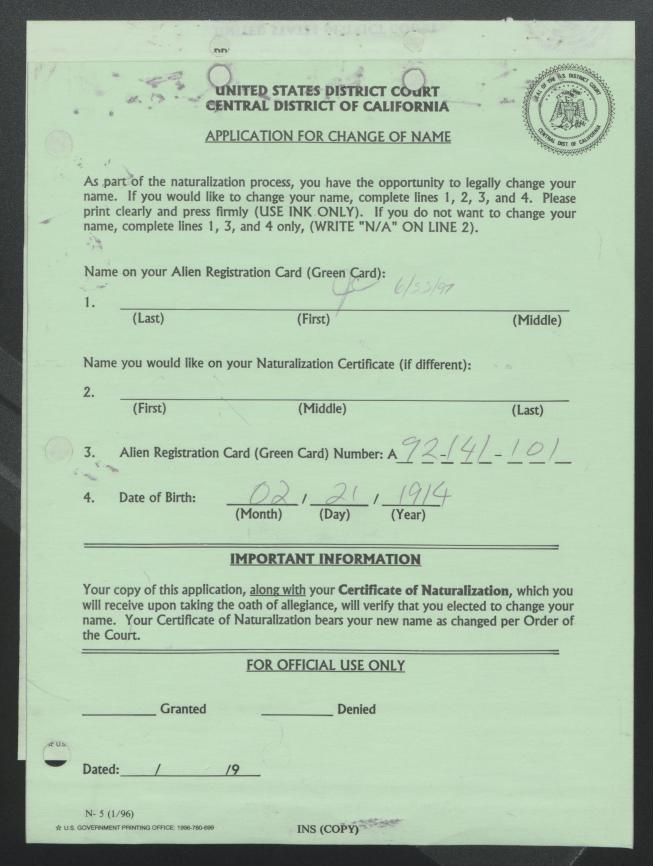 UNITED STATES DISTRICT COURT
CENTRAL DISTRICT OF CALIFORNIA
SEAL OF THE U.S. DISTRICT COURT
CENTRAL DIST. OF CALIFORNIA
APPLICATION FOR CHANGE OF NAME
As part of the naturalization process, you have the opportunity to legally change your
name. If you would like to change your name, complete lines 1, 2, 3, and 4. Please
print clearly and press firmly (USE INK ONLY). If you do not want to change your
name, complete lines 1, 3, and 4 only, (WRITE "N/A" ON LINE 2).
Name on your Alien Registration Card (Green Card):
1.
(Last) (First) (Middle)
Name you would like on your Naturalization Certificate (if different):
2.
(First) (Middle) (Last)
3. Alien Registration Card (Green Card) Number: A 92-141-101
4. Date of Birth: 02 / 21 / 1914
(Month) (Day) (Year)
IMPORTANT INFORMATION
Your copy of this application, along with your Certificate of Naturalization, which you
will receive upon taking the oath of allegiance, will verify that you elected to change your
name. Your Certificate of Naturalization bears your new name as changed per Order of
the Court.
FOR OFFICIAL USE ONLY
Granted Denied
☆ U.S.
Dated: / /9
N- 5 (1/96)
☆ U.S. GOVERNMENT PRINTING OFFICE: 1996-780-699
INS (COPY)